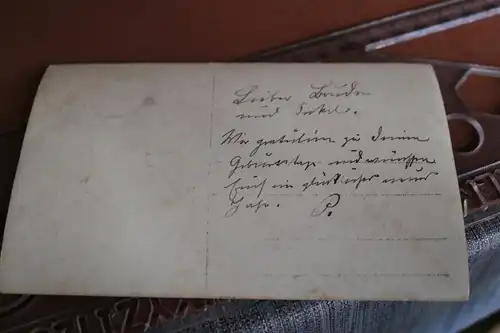 Lieber Bruder
und Onkel.
Wir gratulieren zu Deinem
Geburtstage und wünschen
Euch ein glückliches neues
Jahr. P.